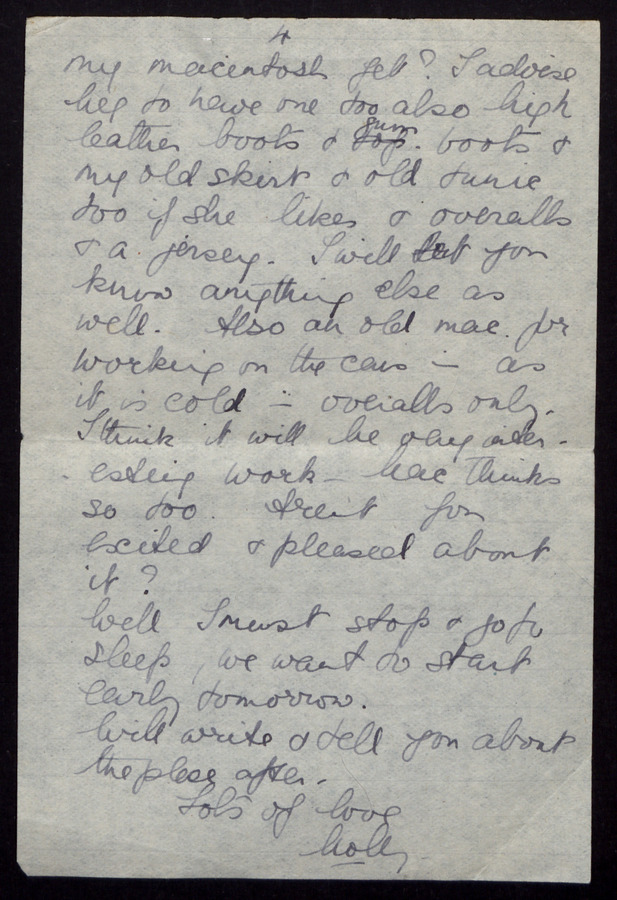 4
my macentosh yet? I advise
her to have one too also high
leather boots & gum boots &
my old skirt & old tunic
too if she likes & overalls
& a jersey. I will let you
know anything else as
well. Also an old mac. for
working on the cars – as
it is cold – overalls only.
I think it will be very inter-
esting work – Mac thinks
so too. Arent you
excited & pleased about
it?
Well I must stop & go to
sleep, we want to start
early tomorrow.
Will write & tell you about
the place after.
Lots of love
Molly